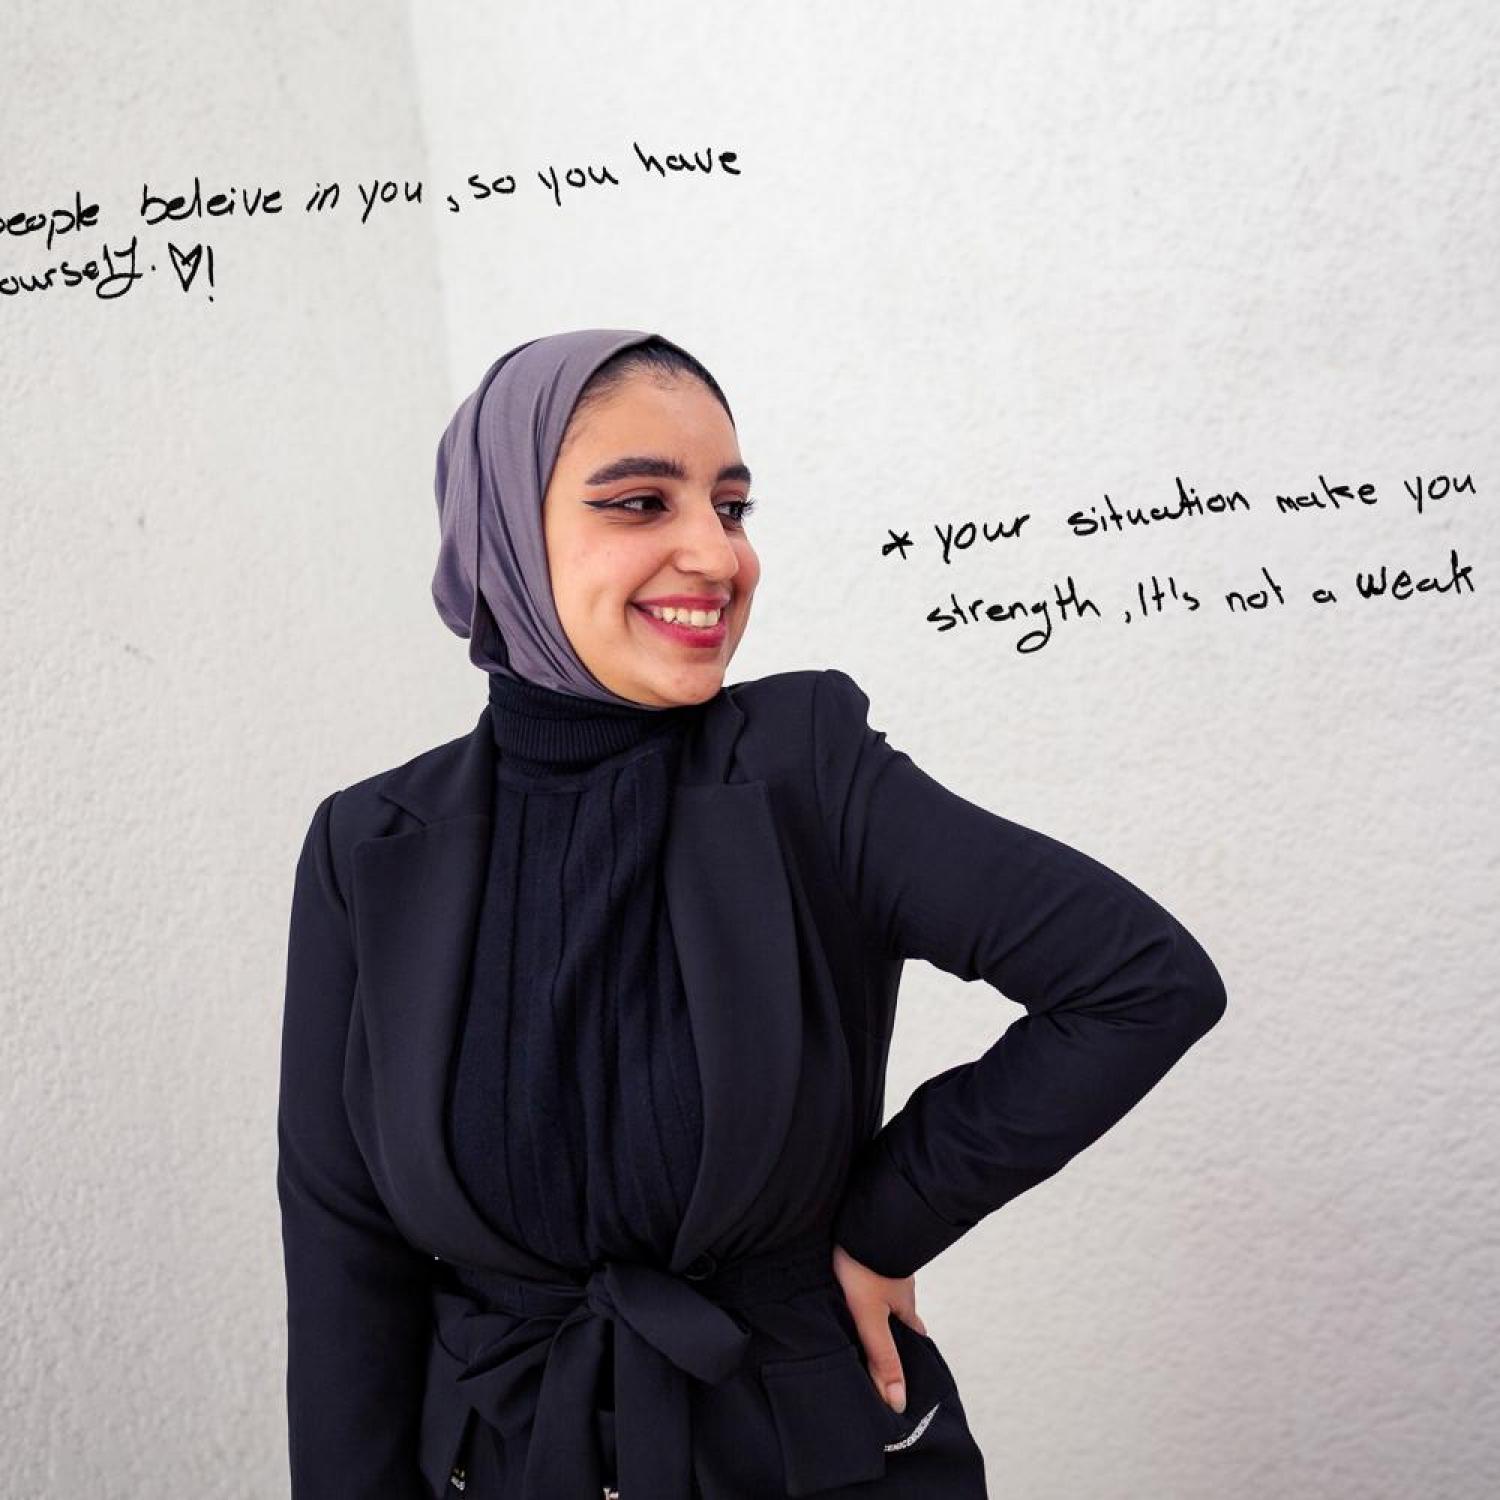 people beleive in you, so you have
ourself. ♡!
* your situation make you
strength, It's not a weak